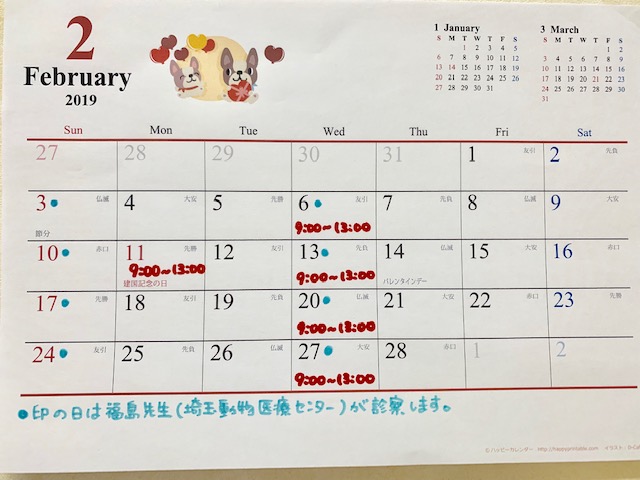 2
February
2019
1 January
S M T W T F S
1 2 3 4 5
6 7 8 9 10 11 12
13 14 15 16 17 18 19
20 21 22 23 24 25 26
27 28 29 30 31
3 March
S M T W T F S
1 2
3 4 5 6 7 8 9
10 11 12 13 14 15 16
17 18 19 20 21 22 23
24 25 26 27 28 29 30
31
Sun Mon Tue Wed Thu Fri Sat
27 28 29 30 31 1 友引 2 先負
3 仏滅 4 大安 5 先勝 6 友引 7 先負 8 仏滅 9 大安
節分 9:00~13:00
10 赤口 11 先勝 12 友引 13 先負 14 仏滅 15 大安 16 赤口
9:00~13:00 9:00~13:00
建国記念の日 バレンタインデー
17 先勝 18 友引 19 先負 20 仏滅 21 大安 22 赤口 23 先勝
9:00~13:00
24 友引 25 先負 26 仏滅 27 大安 28 赤口 1 2
9:00~13:00
●印の日は福島先生(埼玉動物医療センター)が診察します。
©ハッピーカレンダー